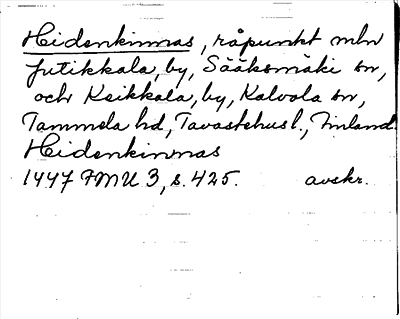 Hidenkinnas, råpunkt mln
Jutikkala, by, Sääksmäki sn,
och Keikkala, by, Kalvola sn,
Tammela hd, Tavastehus l., Finland.
Hidenkinnas
1447 FMU 3, s. 425. avskr.